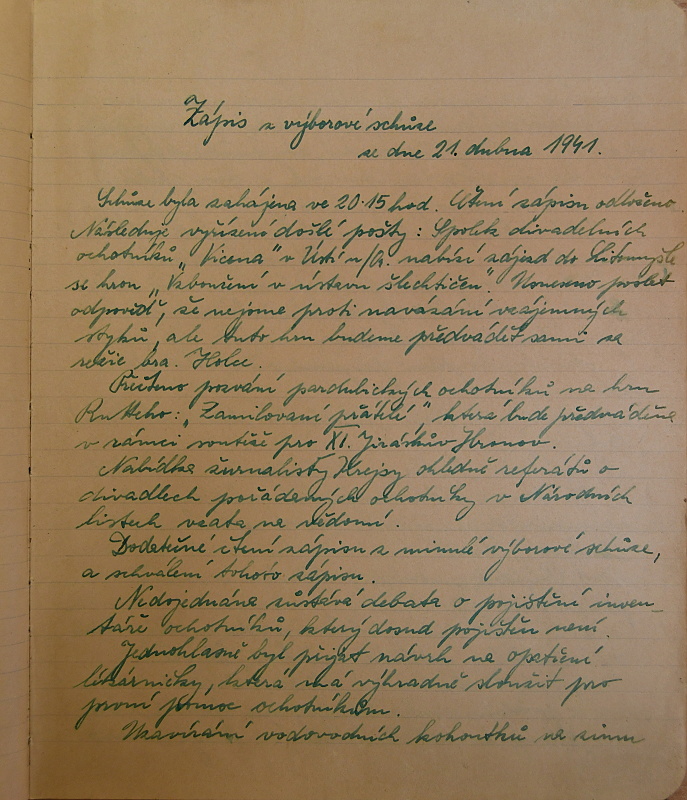 Zápis z výborové schůze
ze dne 21. dubna 1941.
Schůze byla zahájena ve 20.15 hod. Čtení zápisu odloženo.
Následuje vyřízení došlé pošty: Spolek divadelních
ochotníků „Vicena" v Ústí n/O. nabízí zájezd do Litomyšle
se hrou „Vzbouření v ústavu šlechtičen". Usneseno poslat
odpověď, že nejsme proti navázání vzájemných
styků, ale tuto hru budeme předvádět sami za
režie bra. Holce.
Přečteno pozvání pardubických ochotníků na hru
Rutteho: „Zamilovaní přátelé", která bude předváděna
v rámci soutěže pro XI. Jiráskův Hronov.
Nabídka žurnalisty Krejsy ohledně referátů o
divadlech pořádaných ochotníky v Národních
listech vzata na vědomí.
Dodatečné čtení zápisu z minulé výborové schůze,
a schválení tohoto zápisu.
Nedojednána zůstává debata o pojištění inven-
táře ochotníků, který dosud pojištěn není.
Jednohlasně byl přijat návrh na opatření
lékárničky, která má výhradně sloužit pro
první pomoc ochotníkům.
Uzavírání vodovodních kohoutků na zimu